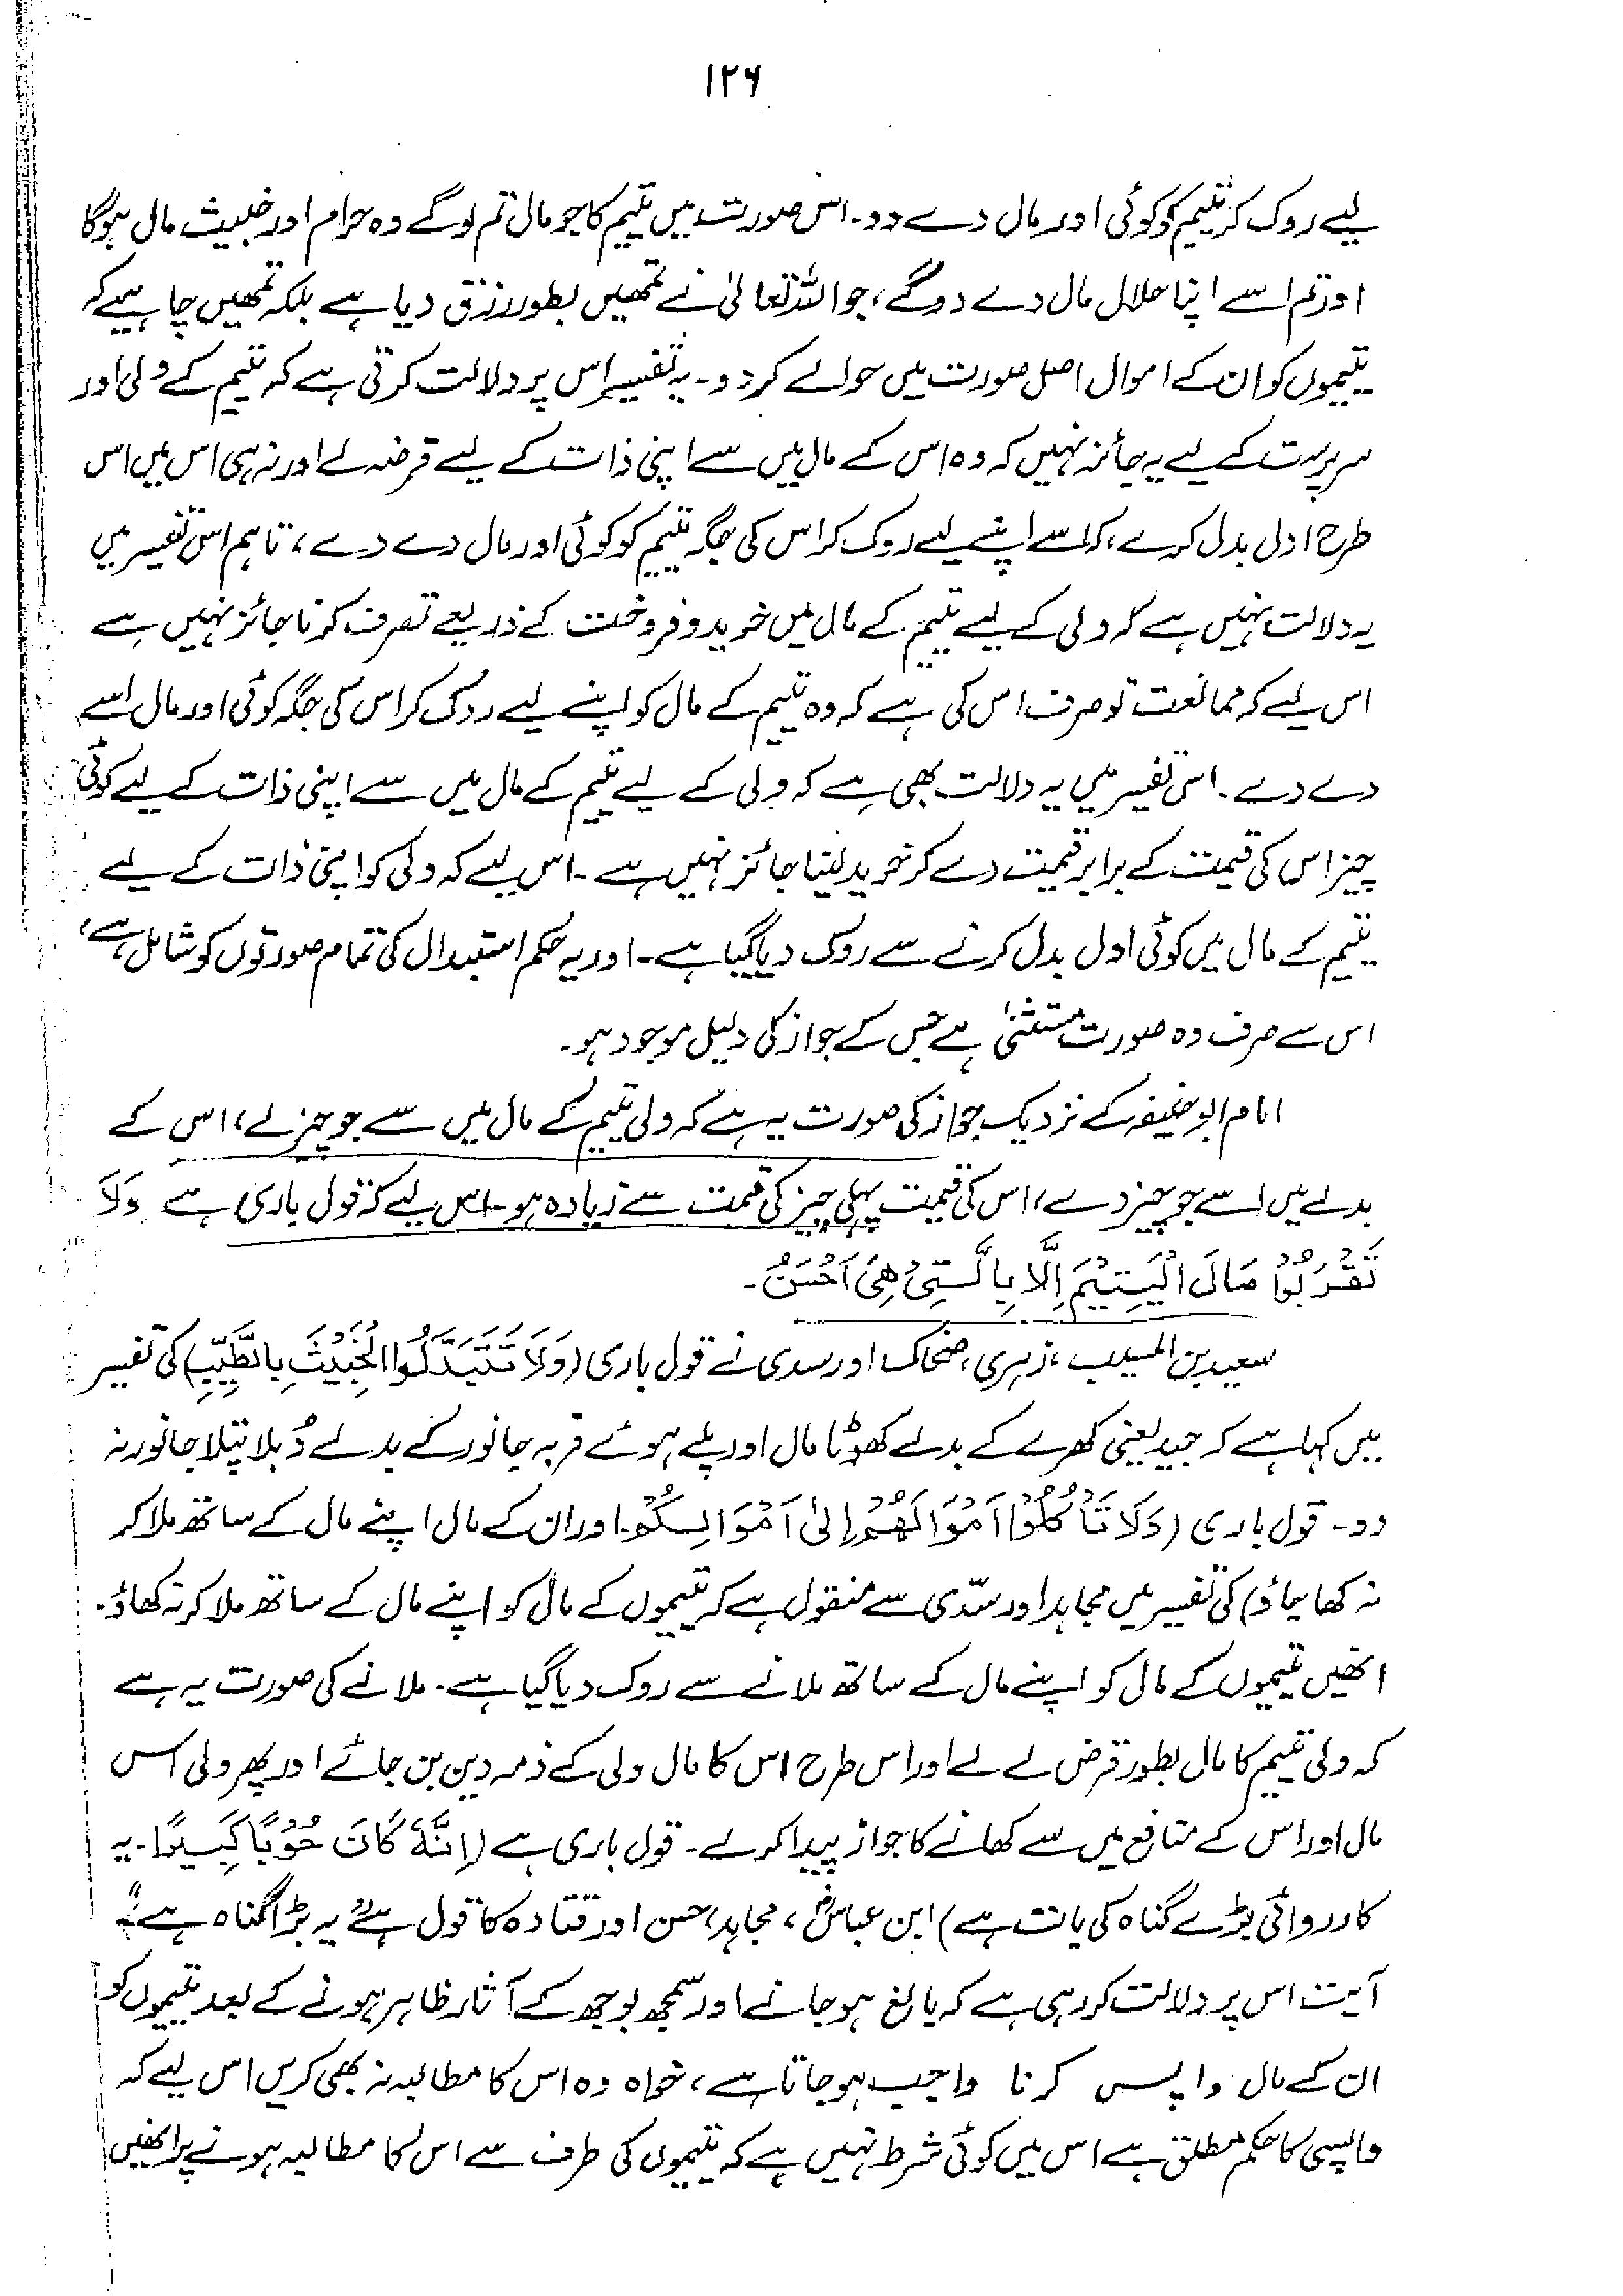 ۱۲۶
لیے روک کر یتیم کو کوئی اور مال دے دو۔ اس صورت میں یتیم کا جو مال تم لوگے وہ حرام اور خبیث مال ہوگا
اور تم اسے اپنا حلال مال دے دوگے، جو اللہ تعالیٰ نے تمھیں بطور رزق دیا ہے بلکہ تمھیں چاہیے کہ
یتیموں کو ان کے اموال اصل صورت میں حوالے کر دو۔ یہ تفسیر اس پر دلالت کرتی ہے کہ یتیم کے ولی اور
سرپرست کے لیے یہ جائز نہیں کہ وہ اس کے مال میں سے اپنی ذات کے لیے قرضہ لے اور نہ ہی اس میں اس
طرح ادل بدل کرے، کہ اسے اپنے لیے روک کر اس کی جگہ یتیم کو کوئی اور مال دے دے، تاہم اس تفسیر میں
یہ دلالت نہیں ہے کہ ولی کے لیے یتیم کے مال میں خرید و فروخت کے ذریعے تصرف کرنا جائز نہیں ہے
اس لیے کہ ممانعت تو صرف اس کی ہے کہ وہ یتیم کے مال کو اپنے لیے روک کر اس کی جگہ کوئی اور مال اسے
دے دے۔ اس تفسیر میں یہ دلالت بھی ہے کہ ولی کے لیے یتیم کے مال میں سے اپنی ذات کے لیے کوئی
چیز اس کی قیمت کے برابر قیمت دے کر خرید لینا جائز نہیں ہے۔ اس لیے کہ ولی کو اپنی ذات کے لیے
یتیم کے مال میں کوئی ادل بدل کرنے سے روک دیا گیا ہے۔ اور یہ حکم استبدال کی تمام صورتوں کو شامل ہے،
اس سے صرف وہ صورت مستثنیٰ ہے جس کے جواز کی دلیل موجود ہو۔
امام ابوحنیفہ کے نزدیک جواز کی صورت یہ ہے کہ ولی یتیم کے مال میں سے جو چیز لے، اس کے
بدلے میں اسے جو چیز دے، اس کی قیمت پہلی چیز کی قیمت سے زیادہ ہو۔ اس لیے کہ قول باری ہے وَلَا
تَقْرَبُوْا مَالَ الْيَتِيْمِ اِلَّا بِالَّتِیْ هِیَ اَحْسَنُ۔
سعید بن المسیب، زہری، ضحاک اور سدی نے قول باری (وَلَا تَتَبَدَّلُوا الْخَبِيْثَ بِالطَّيِّبِ) کی تفسیر
میں کہا ہے کہ جید یعنی کھرے کے بدلے کھوٹا مال اور پلے ہوئے فربہ جانور کے بدلے دُبلا پتلا جانور نہ
دو۔ قول باری (وَلَا تَأْكُلُوْا اَمْوَالَهُمْ اِلٰی اَمْوَالِكُمْ۔ اور ان کے مال اپنے مال کے ساتھ ملا کر
نہ کھا جاؤ) کی تفسیر میں مجاہد اور سدّی سے منقول ہے کہ یتیموں کے مال کو اپنے مال کے ساتھ ملا کر نہ کھاؤ۔
انھیں یتیموں کے مال کو اپنے مال کے ساتھ ملانے سے روک دیا گیا ہے۔ ملانے کی صورت یہ ہے
کہ ولی یتیم کا مال بطور قرض لے لے اور اس طرح اس کا مال ولی کے ذمہ دین بن جائے اور پھر ولی اس
مال اور اس کے منافع میں سے کھانے کا جواز پیدا کرلے۔ قول باری ہے (اِنَّهٗ كَانَ حُوْبًا كَبِيْرًا۔ یہ
کارروائی بڑے گناہ کی بات ہے) ابن عباسؓ، مجاہد، حسن اور قتادہ کا قول ہے "یہ بڑا گناہ ہے"۔
آیت اس پر دلالت کر رہی ہے کہ بالغ ہو جانے اور سمجھ بوجھ کے آثار ظاہر ہونے کے بعد یتیموں کو
ان کے مال واپس کرنا واجب ہو جاتا ہے، خواہ وہ اس کا مطالبہ نہ بھی کریں اس لیے کہ
واپسی کا حکم مطلق ہے اس میں کوئی شرط نہیں ہے کہ یتیموں کی طرف سے اس کا مطالبہ ہونے پر انھیں